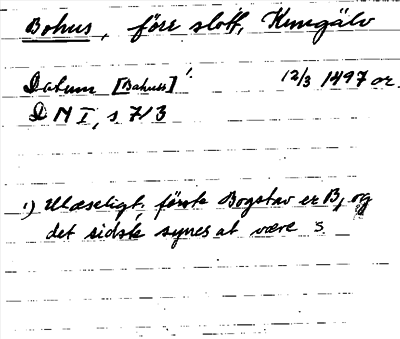 Bohus, förr slott, Kungälv
Datum [Bahuss] ¹⁾ 12/3 1497 or.
D N I, s 713
¹) Ulæseligt, første Bogstav er B, og
det sidste synes at være s.